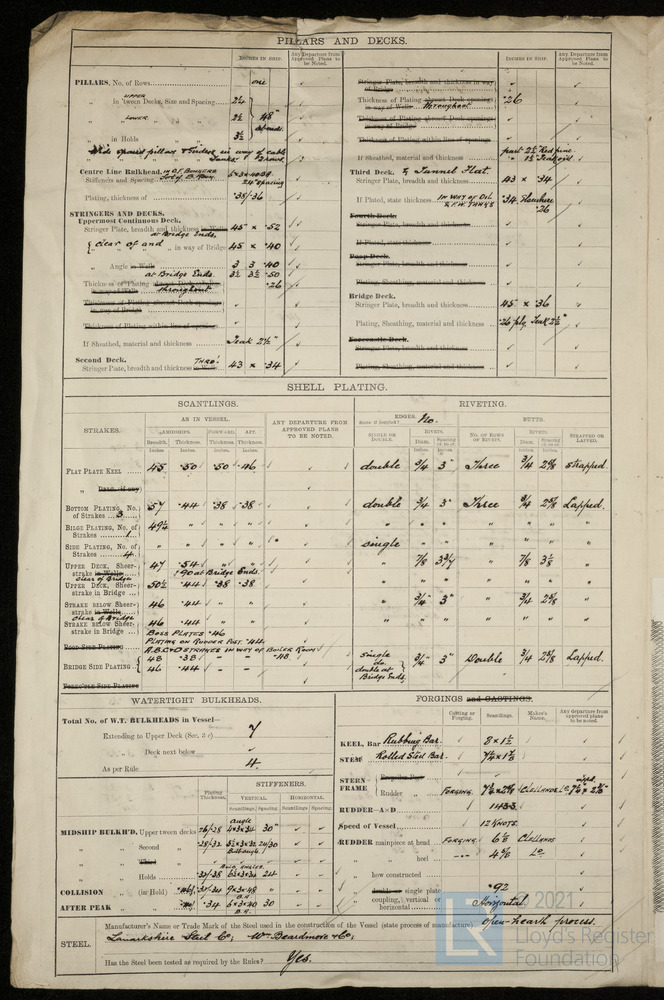 PILLARS AND DECKS.
INCHES IN SHIP.
Any Departure from Approved Plans to be Noted.
PILLARS, No. of Rows one
UPPER
„ in 'tween Decks, Size and Spacing 2¼
„ LOWER „ 2½ 48"
„ in Holds 3½
Centre Line Bulkhead.
Stiffeners and Spacing
24" spacing
Plating, thickness of .38/.36
STRINGERS AND DECKS.
Uppermost Continuous Deck.
Stringer Plate, breadth and thickness in Wells 45 × .52
at Bridge Ends.
clear of and „ in way of Bridge 45 × .40
„ Angle in Wells 3 3 .40
at Bridge Ends. 3½ 3½ .50
Thickness of Plating throughout .26
Thickness of Plating abreast Deck openings in way of Bridge
Thickness of Plating within line of openings
If Sheathed, material and thickness Teak 2½"
Second Deck. THRO'
Stringer Plate, breadth and thickness in Wells 43 × .34
INCHES IN SHIP.
Any Departure from Approved Plans to be Noted.
Stringer Plate, breadth and thickness in way of Bridge
Thickness of Plating abreast Deck openings in way of Wells throughout .26
Thickness of Plating abreast Deck openings in way of Bridge
Thickness of Plating within line of openings
If Sheathed, material and thickness part 2½ Red pine
Third Deck. & Tunnel Flat.
Stringer Plate, breadth and thickness 43 × .34
If Plated, state thickness IN WAY OF OIL & F.W. TANKS .34 Elsewhere .26
Fourth Deck.
Stringer Plate, breadth and thickness
If Plated, state thickness
Poop Deck.
Stringer Plate, breadth and thickness
Plating, Sheathing, material and thickness
Bridge Deck.
Stringer Plate, breadth and thickness 45 × .36
Plating, Sheathing, material and thickness .26 plg. Teak 2½"
Forecastle Deck.
Stringer Plate, breadth and thickness
Plating, Sheathing, material and thickness
SHELL PLATING.
SCANTLINGS.
RIVETING.
STRAKES.
AS IN VESSEL.
AMIDSHIPS. FORWARD. AFT.
Breadth. Thickness. Thickness. Thickness.
Inches. Inches. Inches. Inches.
ANY DEPARTURE FROM APPROVED PLANS TO BE NOTED.
EDGES. No.
SINGLE OR DOUBLE.
RIVETS.
Diam. Spacing
BUTTS.
NO. OF ROWS OF RIVETS.
RIVETS.
Diam.
STRAPPED OR LAPPED.
FLAT PLATE KEEL 45 .50 .50 .46 double ¾ 3" Three ¾ 2⅝ strapped.
BOTTOM PLATING, No. of Strakes 3 57 .44 .38 .38 double ¾ 3" Three ¾ 2⅝ Lapped.
BILGE PLATING, No. of Strakes 1 49¼ „ „ „ „ „ „ „ „ „ „
SIDE PLATING, No. of Strakes 4 „ „ „ „ single „ „ „ „ „ „
UPPER DECK, Sheerstrake in Wells 47 .54 „ ⅞ „ ⅞
clear of Bridge .90 at Bridge Ends.
UPPER DECK, Sheerstrake in Bridge 50½ .44 .38 .38
STRAKE BELOW Sheerstrake in Wells 46 .44 „ „ „ ¾ 3" „ ¾ 2⅝ „
clear of Bridge
STRAKE BELOW Sheerstrake in Bridge 46 .44 „ „
BOSS PLATES .46
PLATING ON RUDDER POST .44
POOP SIDE PLATING
A.B.C & D STRAKES IN WAY OF BOILER ROOM .48
BRIDGE SIDE PLATING 48 .38 – – single ¾ 3" Double ¾ 2⅝ Lapped.
46 .44 – – do. double at Bridge Ends.
FORECASTLE SIDE PLATING
WATERTIGHT BULKHEADS.
Total No. of W.T. BULKHEADS in Vessel—
Extending to Upper Deck 7
„ Deck next below
As per Rule 4
Plating Thickness.
STIFFENERS.
VERTICAL. HORIZONTAL.
Scantlings Spacing Scantlings Spacing
MIDSHIP BULKH'D, Upper tween decks .26/.28 angle 30"
„ Second „ .28/.32 24/30
Bulb angle
„ Third „
„ Holds „ .32/.38 24
COLLISION „ (in Hold) 9×3×.48
AFTER PEAK „ „ .34 6×3×.30 30
FORGINGS and CASTINGS.
Casting or Forging.
Scantlings.
Maker's Name.
Any departure from approved plans to be noted.
KEEL, Bar Rubbing Bar. 8 × 1½
STEM Rolled Steel Bar.
STERN FRAME
Propeller Post
Rudder „ FORGING.
RUDDER—A×D
Speed of Vessel 12 KNOTS.
RUDDER mainpiece at head FORGING.
„ „ heel
„ how constructed
double or single plate .92
coupling, vertical or horizontal Horizontal
STEEL.
Manufacturer's Name or Trade Mark of the Steel used in the construction of the Vessel (state process of manufacture) open-hearth process.
Lanarkshire Steel Co; Wm Beardmore & Co;
Has the Steel been tested as required by the Rules? Yes.
LR
2021
Lloyd's Register
Foundation